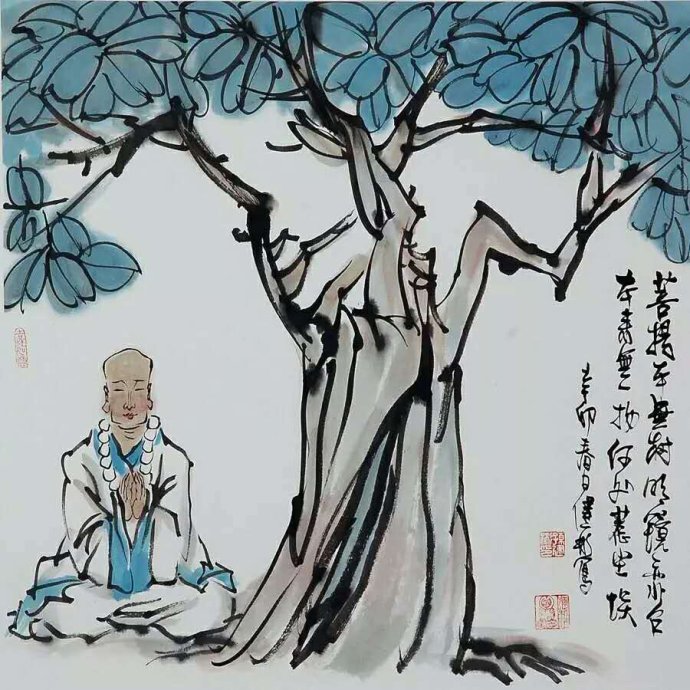 菩提本無樹明鏡亦台
本來無一物何處惹塵埃
辛卯春日健寫